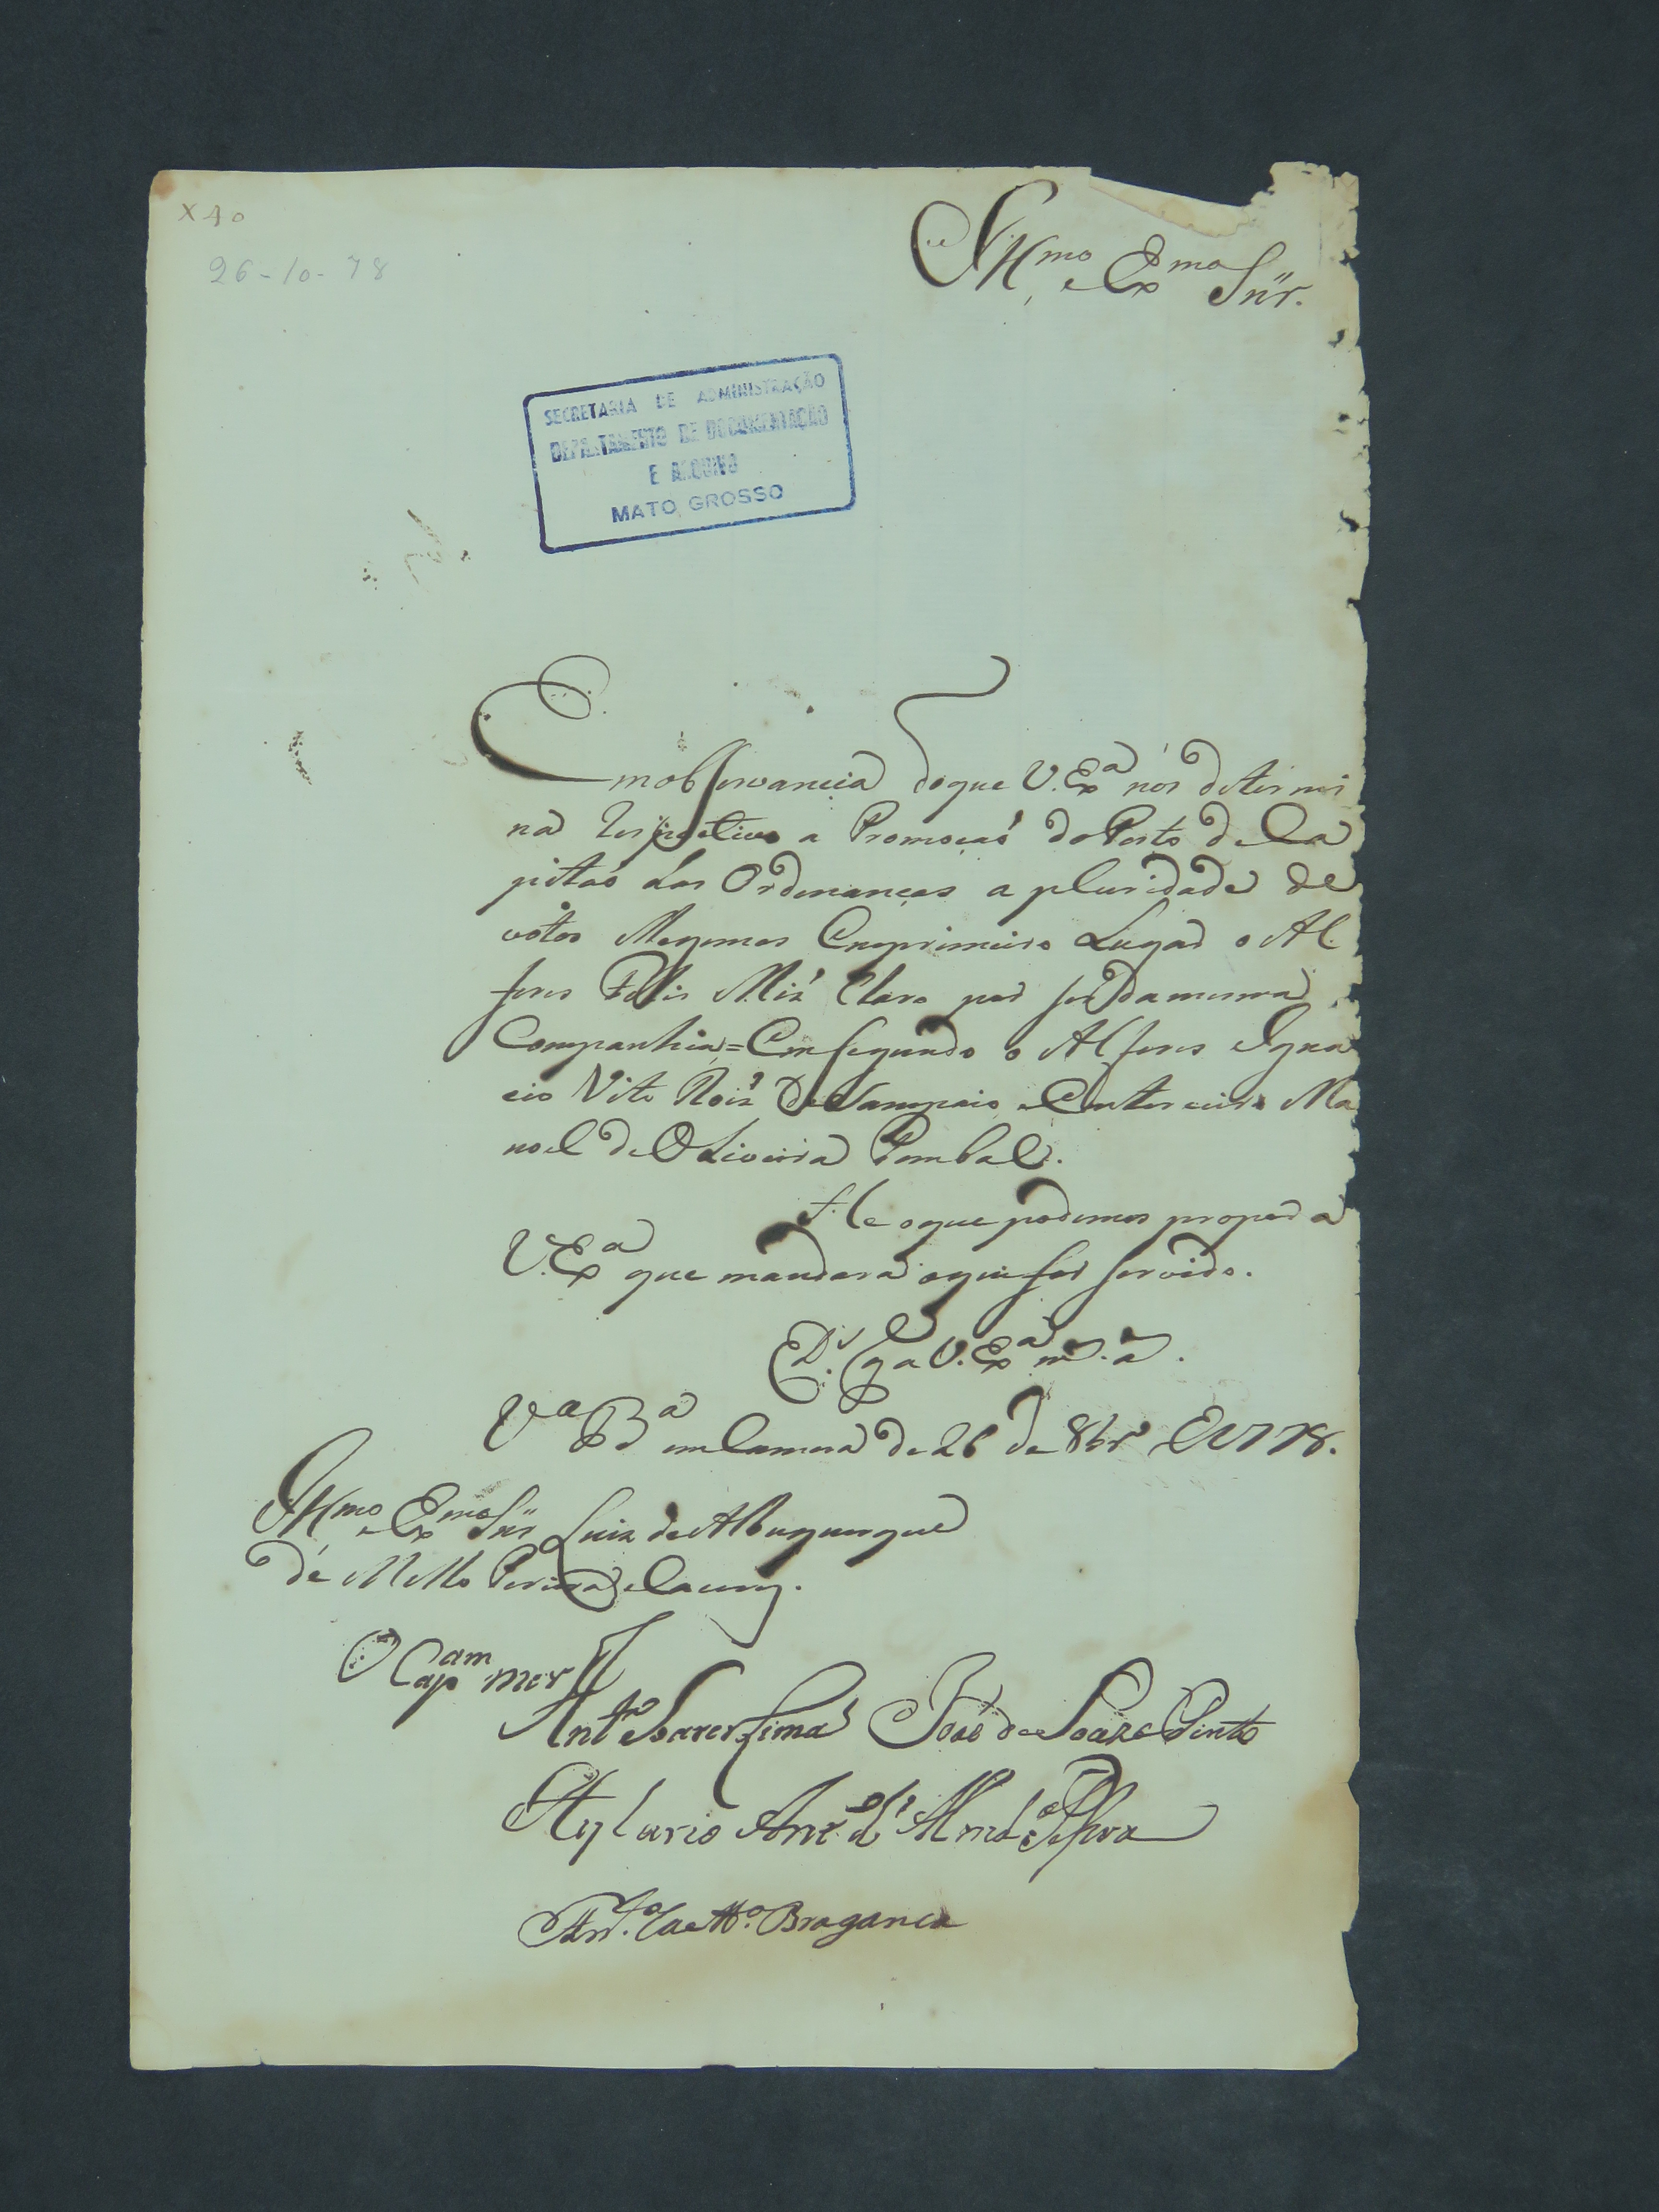 X40
26-10-78
Ill.mo e Ex.mo Snr.
SECRETARIA DE ADMINISTRAÇÃO
DEPARTAMENTO DE DOCUMENTAÇÃO
E ARQUIVO
MATO GROSSO
Emobservancia doque V. Ex.a nos determi
na respectivo a Promoçaõ do Posto de Ca
pitaõ das Ordenanças a pluridade de
votos Emprimeiro Lugar o Al
feres Felis Miz' Claro por ser damesma
Companhia = Emsegundo o Alferes Igna
cio Vito Roiz' de Sampaio e Emterceiro Ma
noel de Oliveira Pombal.
He oque podemos propor a
V. Ex.a que mandara oque for servido.
D.s g.e a V. Ex.a m.s a.s
V.a B.a em Camera de 26 de 8br.o de 1778.
Ill.mo e Ex.mo Snr Luiz de Albuquerque
de Mello Pereira e Caceres.
O Cap.am mor
Ant.o Soares Lima José de Souza Pinto
Hylario Ant.o d' Almd.a Sylva
Ant.o Caett.o Bragança